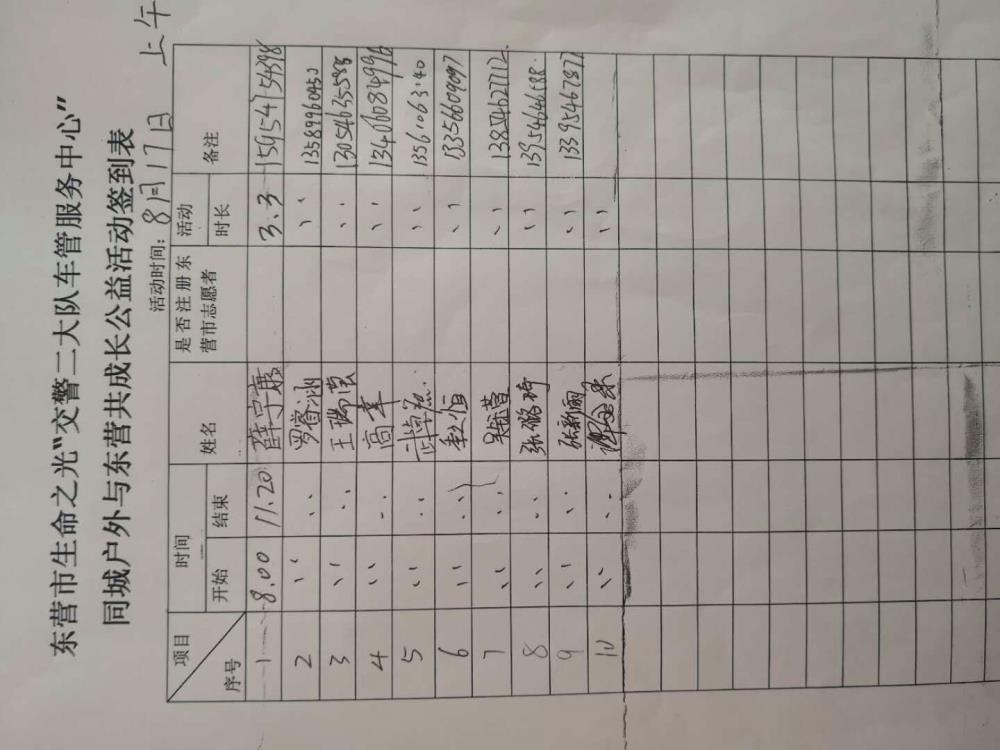 东营市生命之光“交警二大队车管服务中心”
同城户外与东营共成长公益活动签到表
活动时间：8月17日 上午
项目 时间 姓名 是否注册东营市志愿者 活动时长 备注
序号 开始 结束
1 8.00 11.20 薛守康 3.3 15954754398
2 〃 〃 罗睿洲 〃 13589960453
3 〃 〃 王瑞芸 〃 13054635588
4 〃 〃 高幸 〃 13406084996
5 〃 〃 〃 13561063140
6 〃 〃 赵恒 〃 13356609097
7 〃 〃 〃 13854627712
8 〃 〃 张璐琦 〃 13954646588
9 〃 〃 张新丽 〃 13395467877
10 〃 〃 〃